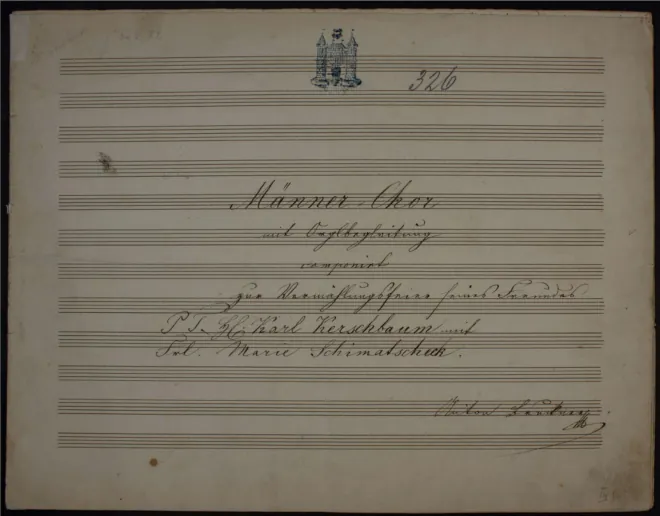 326
Männer-Chor
mit Orglbegleitung
componirt
zur Vermählungsfeier seines Freundes
P. T. H. Karl Kerschbaum mit
Frl. Marie Schimatscheck.
Anton Bruckner